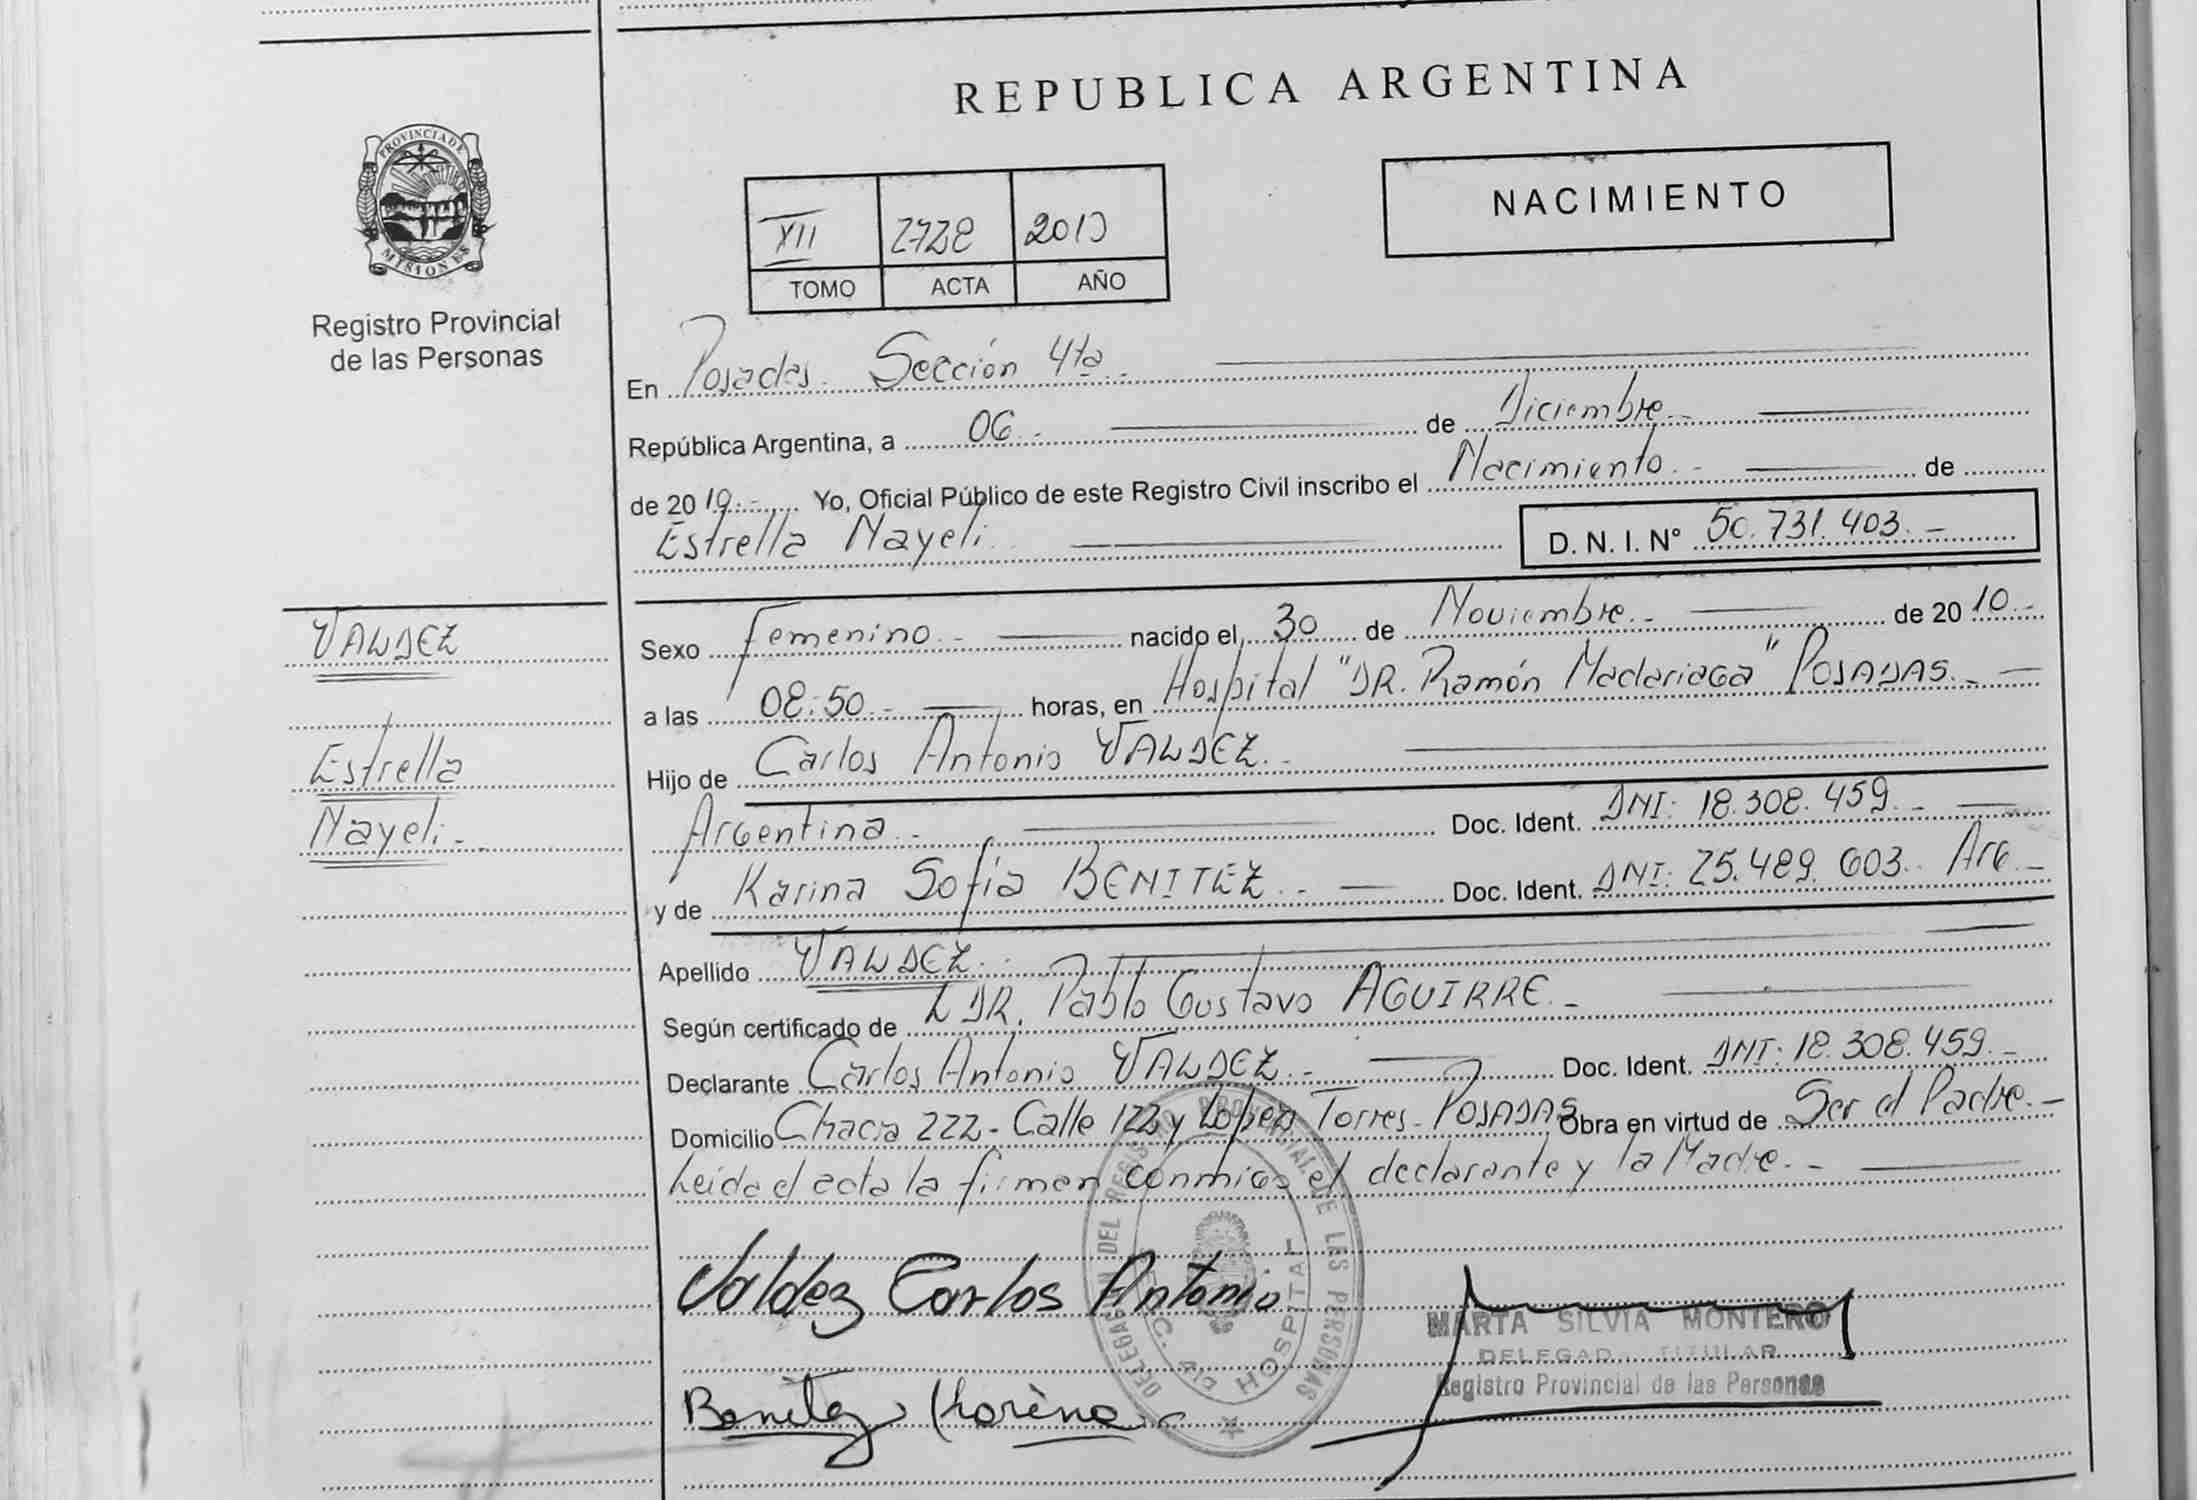 REPUBLICA ARGENTINA
PROVINCIA DE
MISIONES
Registro Provincial
de las Personas
NACIMIENTO
XII 2728 2010
TOMO ACTA AÑO
En Posadas. Sección 4ta.-
República Argentina, a 06.- de Diciembre.-
de 2010.- Yo, Oficial Público de este Registro Civil inscribo el Nacimiento.- de
Estrella Nayeli.- D. N. I. N° 50.731.403.-
VALDEZ
Estrella
Nayeli.-
Sexo Femenino.- nacido el, 30 de Noviembre.- de 2010.-
a las 08:50.- horas, en Hospital "DR. Ramón Madariaga" POSADAS.-
Hijo de Carlos Antonio VALDEZ.-
Argentina.- Doc. Ident. DNI: 18.308.459.-
y de Karina Sofia BENITEZ.- Doc. Ident. DNI: 25.489.603.- Arg.-
Apellido VALDEZ.-
Según certificado de DR. Pablo Gustavo AGUIRRE.-
Declarante Carlos Antonio VALDEZ.- Doc. Ident. DNI: 18.308.459.-
Domicilio Chacra 222- Calle 122 y Lopez Torres- POSADAS Obra en virtud de Ser el Padre.-
Leida el acta la firman conmigo el declarante y la Madre.-
Valdez Carlos Antonio
Benitez
DELEGACION DEL REGISTRO PROVINCIAL DE LAS PERSONAS
SEC. 4ta HOSPITAL
MARTA SILVIA MONTERO
DELEGADA TITULAR
Registro Provincial de las Personas